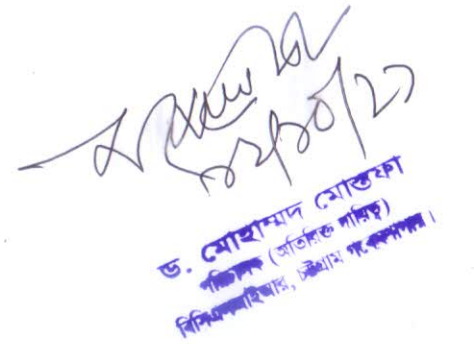 ১২/১০/২৩
ড. মোহাম্মদ মোস্তফা
পরিচালক (অতিরিক্ত দায়িত্ব)
বিসিএসআইআর, চট্টগ্রাম গবেষণাগার।